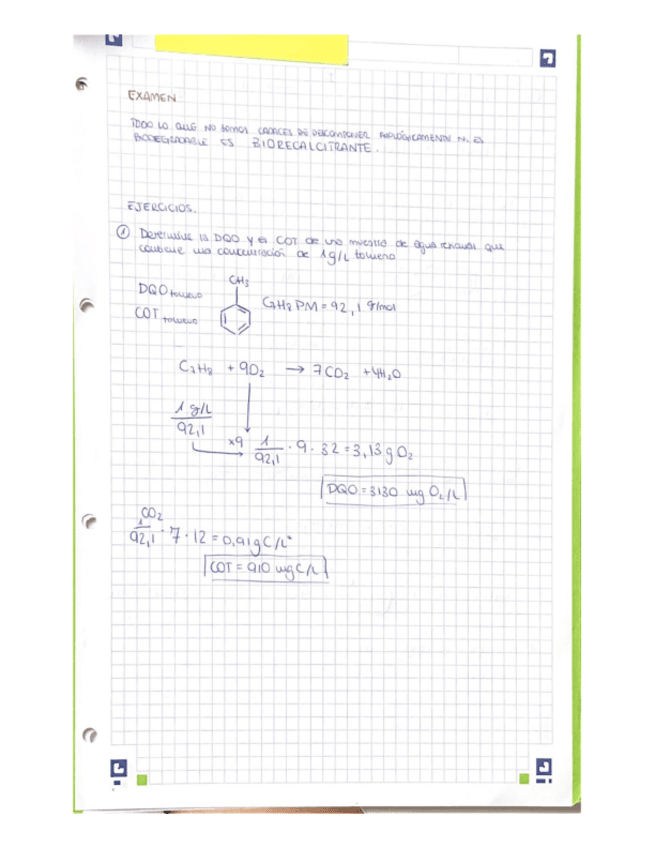 EXAMEN
TODO LO QUE NO SOMOS CAPACES DE DESCOMPONER BIOLÓGICAMENTE NI ES
BIODEGRADABLE ES BIORECALCITRANTE.
EJERCICIOS.
① Determine la DQO y el COT de una muestra de agua residual que
contiene una concentración de 1g/L tolueno
DQO tolueno
COT tolueno
CH3
C7H8 PM = 92,1 g/mol
C7H8 + 9O2 → 7CO2 + 4H2O
1 g/L
92,1
x9 1/92,1 · 9 · 32 = 3,13 g O2
DQO = 3130 mg O2/L
CO2
1/92,1 · 7 · 12 = 0,91 g C/L
COT = 910 mg C/L